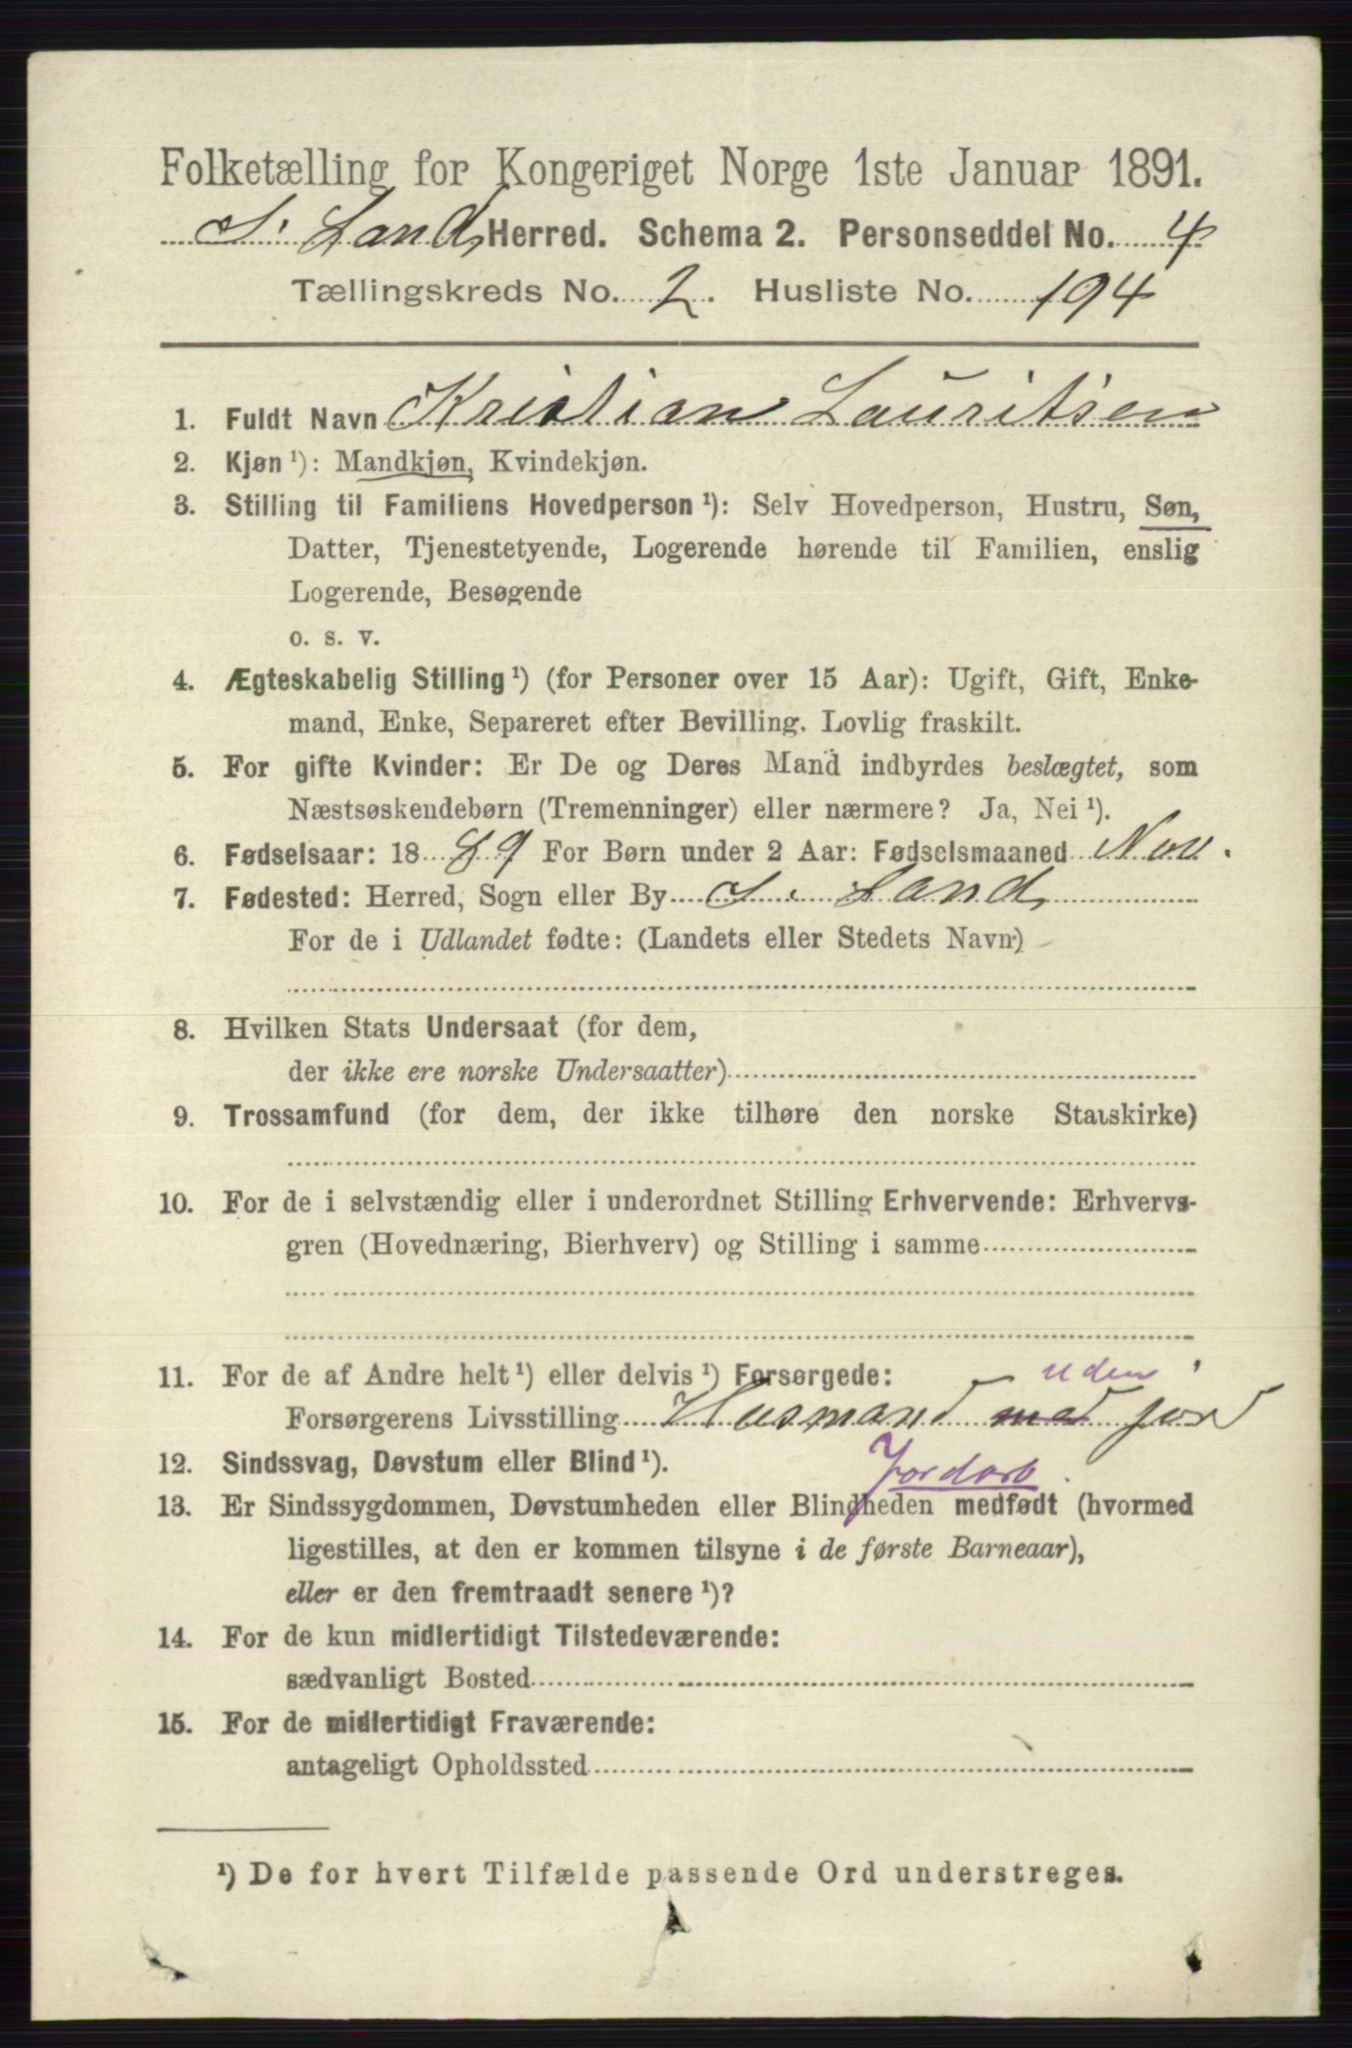 Folketælling for Kongeriget Norge 1ste Januar 1891.
S. Land, Herred. Schema 2. Personseddel No. 4
Tællingskreds No. 2. Husliste No. 194
1. Fuldt Navn Kristian Lauritsen
2. Kjøn ¹): Mandkjøn, Kvindekjøn.
3. Stilling til Familiens Hovedperson ¹): Selv Hovedperson, Hustru, Søn,
Datter, Tjenestetyende, Logerende hørende til Familien, enslig
Logerende, Besøgende
o. s. v.
4. Ægteskabelig Stilling ¹) (for Personer over 15 Aar): Ugift, Gift, Enke-
mand, Enke, Separeret efter Bevilling. Lovlig fraskilt.
5. For gifte Kvinder: Er De og Deres Mand indbyrdes beslægtet, som
Næstsøskendebørn (Tremenninger) eller nærmere? Ja, Nei ¹).
6. Fødselsaar: 1889 For Børn under 2 Aar: Fødselsmaaned Nov.
7. Fødested: Herred, Sogn eller By S. Land,
For de i Udlandet fødte: (Landets eller Stedets Navn)
8. Hvilken Stats Undersaat (for dem,
der ikke ere norske Undersaatter)
9. Trossamfund (for dem, der ikke tilhøre den norske Statskirke)
10. For de i selvstændig eller i underordnet Stilling Erhvervende: Erhvervs-
gren (Hovednæring, Bierhverv) og Stilling i samme
11. For de af Andre helt ¹) eller delvis ¹) Forsørgede:
uden
Forsørgerens Livsstilling Husmand med jord
12. Sindssvag, Døvstum eller Blind ¹). Jordarb.
13. Er Sindssygdommen, Døvstumheden eller Blindheden medfødt (hvormed
ligestilles, at den er kommen tilsyne i de første Barneaar),
eller er den fremtraadt senere ¹)?
14. For de kun midlertidigt Tilstedeværende:
sædvanligt Bosted
15. For de midlertidigt Fraværende:
antageligt Opholdssted
¹) De for hvert Tilfælde passende Ord understreges.